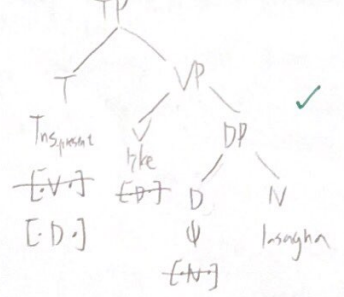 TP
T VP
Tns:present V DP
like
[·V·] [·D·] D N
[·D·] ψ lasagna
[·N·]